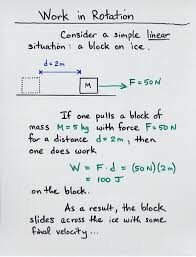 Work in Rotation
Consider a simple linear
situation : a block on ice.
d = 2m
M
F = 50N
If one pulls a block of
mass M = 5 kg with force F = 50N
for a distance d = 2m, then
one does work
W = F · d = (50N)(2m)
= 100 J
on the block.
As a result, the block
slides across the ice with some
final velocity ...